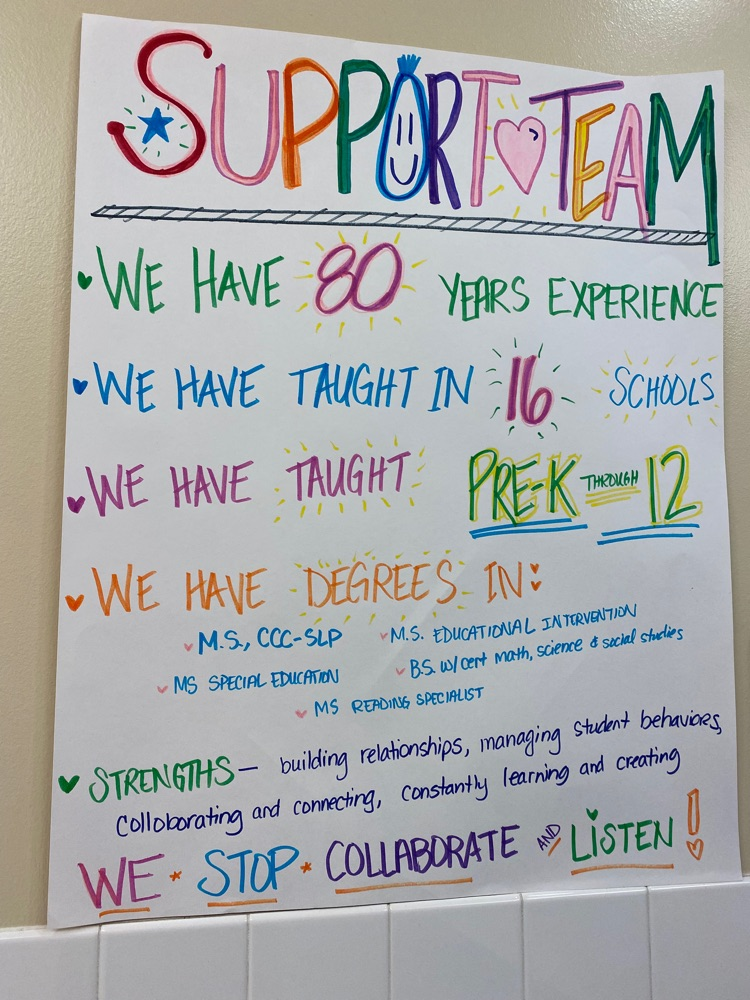 SUPPORT TEAM
WE HAVE 80 YEARS EXPERIENCE
WE HAVE TAUGHT IN 16 SCHOOLS
WE HAVE TAUGHT PRE-K THROUGH 12
WE HAVE DEGREES IN:
M.S., CCC-SLP
M.S. EDUCATIONAL INTERVENTION
MS SPECIAL EDUCATION
B.S. w/cert math, science & social studies
MS READING SPECIALIST
STRENGTHS — building relationships, managing student behaviors,
Colloborating and connecting, constantly learning and creating
WE * STOP * COLLABORATE AND LISTEN!